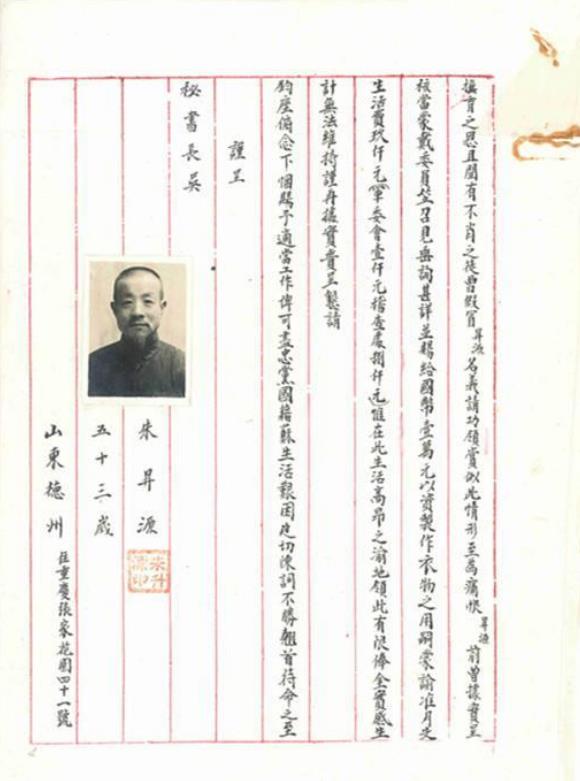 撫育之恩且聞有不肖之徒曾假冒昇源名義請功領賞似此情形至為痛恨昇源前曾據實呈
核當蒙戴委員笠召見垂詢甚詳並賜給國幣壹萬元以資製作衣物之用嗣蒙諭准月支
生活費玖仟元軍委會壹仟元稽查處捌仟元惟在此生活高昂之渝地領此有限俸金實感生
計無法維持謹再據實賚呈懇請
鈞座俯念下悃賜予適當工作俾可盡忠黨國藉蘇生活艱困迫切陳詞不勝翹首待命之至
謹呈
秘書長吳
朱昇源
朱升源印
五十三歲
山東德州 住重慶張家花園四十一號